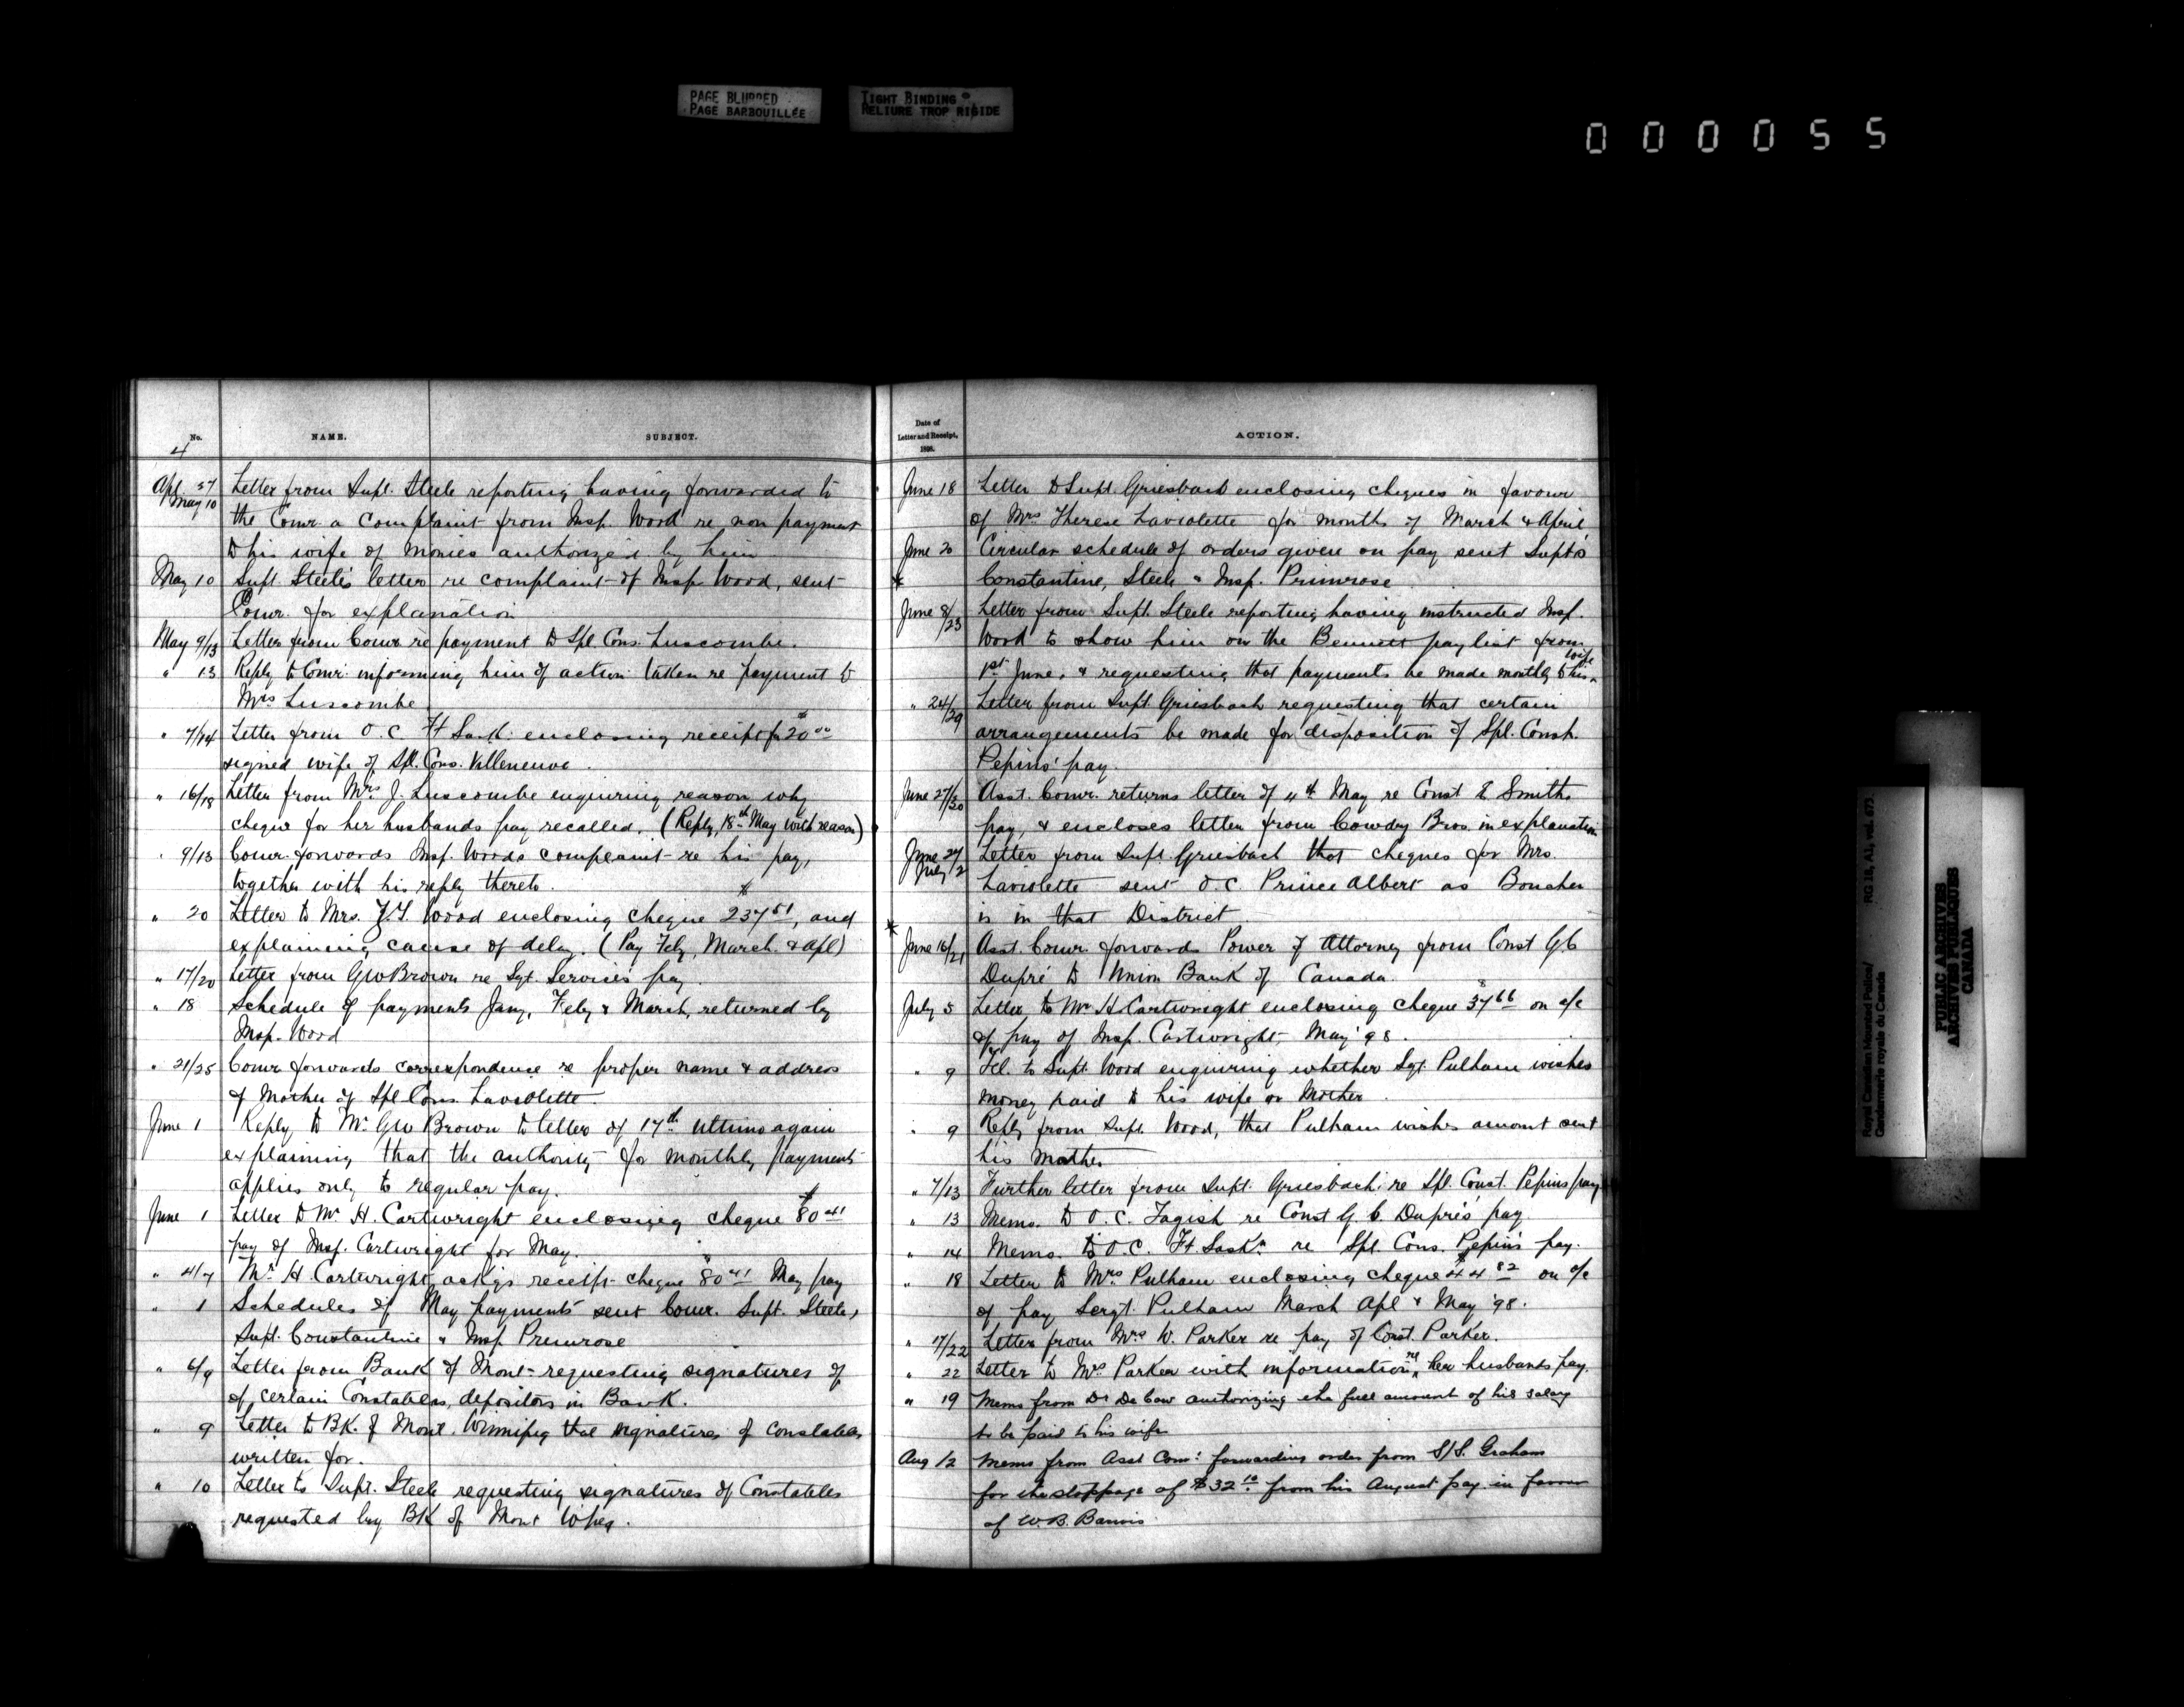 PAGE BLURRED
PAGE BARBOUILLÉE
TIGHT BINDING
RELIURE TROP RIGIDE
000055
No.
NAME.
SUBJECT.
4
Apl. 27
May 10
Letter from Supt. Steele reporting having forwarded to
the Comr. a complaint from Insp. Wood re non payment
to his wife of monies authorized by him
May 10 Supt. Steele's letter re complaint of Insp Wood, sent
Comr. for explanation
May 9/13 Letter from Comr re payment to Spl. Cons. Luscombe.
" 13 Reply to Comr. informing him of action taken re payment to
Mrs Luscombe
" 7/14 Letter from O.C. Ft Sask. enclosing receipt for $20 00
signed wife of Spl. Cons. Villeneuve.
" 16/18 Letter from Mrs J. Luscombe enquiring reason why
cheque for her husbands pay recalled. (Reply, 18th May with reason)
" 9/13 Comr. forwards Insp. Woods complaint re his pay,
together with his reply thereto.
" 20 Letter to Mrs. Z.T. Wood enclosing cheque $237 51, and
explaining cause of delay. (Pay Feby, March. & Apl)
" 17/20 Letter from GW Brown re Sgt. Service's pay.
" 18 Schedule of payments Jany, Feby & March, returned by
Insp. Wood
" 21/25 Comr forwards correspondence re proper name & address
of Mother of Spl Cons. Laviolette.
June 1 Reply to Mr GW Brown to letter of 17th ultimo again
explaining that the authority for monthly payments
applies only to regular pay.
June 1 Letter to Mr H. Cartwright enclosing cheque $80 41
pay of Insp. Cartwright for May.
" 4/7 Mr H. Cartwright, ackgs receipt cheque $80 41 May pay
" 1 Schedules of May payments sent Comr. Supt. Steele,
Supt. Constantine & Insp Primrose
" 6/9 Letter from Bank of Mont. requesting signatures of
of certain Constables, depositors in Bank.
" 9 Letter to BK. of Mont. Winnipeg that signatures of Constables
written for.
" 10 Letter to Supt. Steele requesting signatures of Constables
requested by BK of Mont Wpeg.
Date of
Letter and Receipt,
1898.
ACTION.
June 18 Letter to Supt. Griesbach enclosing cheques in favour
of Mrs Therese Laviolette for months of March & April
June 20 Circular schedule of orders given on pay sent Supts
Constantine, Steele & Insp. Primrose
June 8/23 Letter from Supt. Steele reporting having instructed Insp.
Wood to show him on the Bennett paylist from
1st June, & requesting that payments be made monthly to his wife
" 24/29 Letter from Supt. Griesbach requesting that certain
arrangements be made for disposition of Spl. Const.
Pepins' pay.
June 27/30 Asst. Comr. returns letter of 4th May re Const E Smiths
pay, & encloses letter from Cowdry Bros. in explanation
June 27
July 2
Letter from Supt. Griesbach that cheques for Mrs.
Laviolette sent O.C. Prince Albert as Boucher
is in that District.
June 16/21 Asst. Comr. forwards Power of Attorney from Const G C
Dupré to Union Bank of Canada.
July 5 Letter to Mr H Cartwright enclosing cheque $37 66 on a/c
of pay of Insp. Cartwright, May '98.
" 9 Tel. to Supt. Wood enquiring whether Sgt. Pulham wishes
money paid to his wife or Mother.
" 9 Reply from Supt. Wood, that Pulham wishes amount sent
his Mother
" 7/13 Further letter from Supt. Griesbach re Spl. Const. Pepins pay
" 13 Memo. to O.C. Tagish re Const G. C. Dupré's pay
" 14 Memo. to O.C. Ft Saskn re Spl. Cons. Pepin's pay.
" 18 Letter to Mrs Pulham enclosing cheque $44 82 on a/c
of pay Sergt. Pulham March Apl & May '98.
" 17/22 Letter from Mrs W. Parker re pay of Const. Parker.
" 22 Letter to Mrs Parker with information re her husbands pay.
" 19 Memo from Dr De Cow authorizing the full amount of his salary
to be paid to his wife
Aug 12 Memo from Asst Comr forwarding order from S/S. Graham
for the stoppage of $32 10 from his August pay in favour
of W.B.
Royal Canadian Mounted Police/
Gendarmerie royale du Canada
RG 18, A1, vol. 673.
PUBLIC ARCHIVES
ARCHIVES PUBLIQUES
CANADA